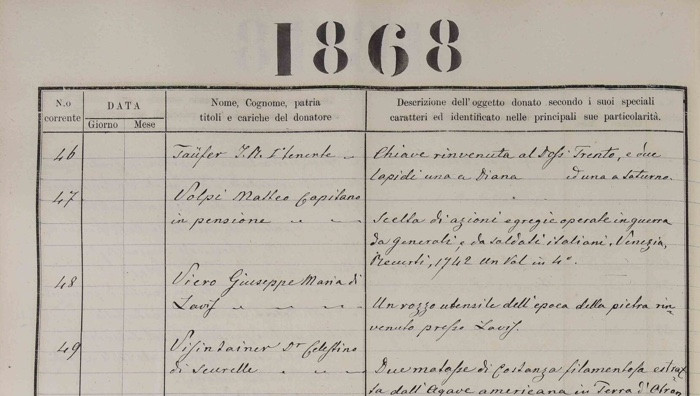 1868
N.o corrente
DATA
Giorno
Mese
Nome, Cognome, patria
titoli e cariche del donatore
Descrizione dell'oggetto donato secondo i suoi speciali
caratteri ed identificato nelle principali sue particolarità.
46
Taüfer I. R. Itenente
Chiave rinvenuta al Doss Trento, e due
lapidi una a Diana ed una a Saturno.
47
Volpi Matteo Capitano
in pensione
Scelta di azioni egregie operate in guerra
da generali, e da soldati italiani, Venezia,
1742 Un Vol in 4°.
48
Viero Giuseppe Maria di
Lavis
Un rozzo utensile dell'epoca della pietra rin-
venuto presso Lavis.
49
Visintainer Dr Celestino
di Scurelle
Due matasse di sostanza filamentosa estrat-
ta dall'Agave americana in Terra d'Otran